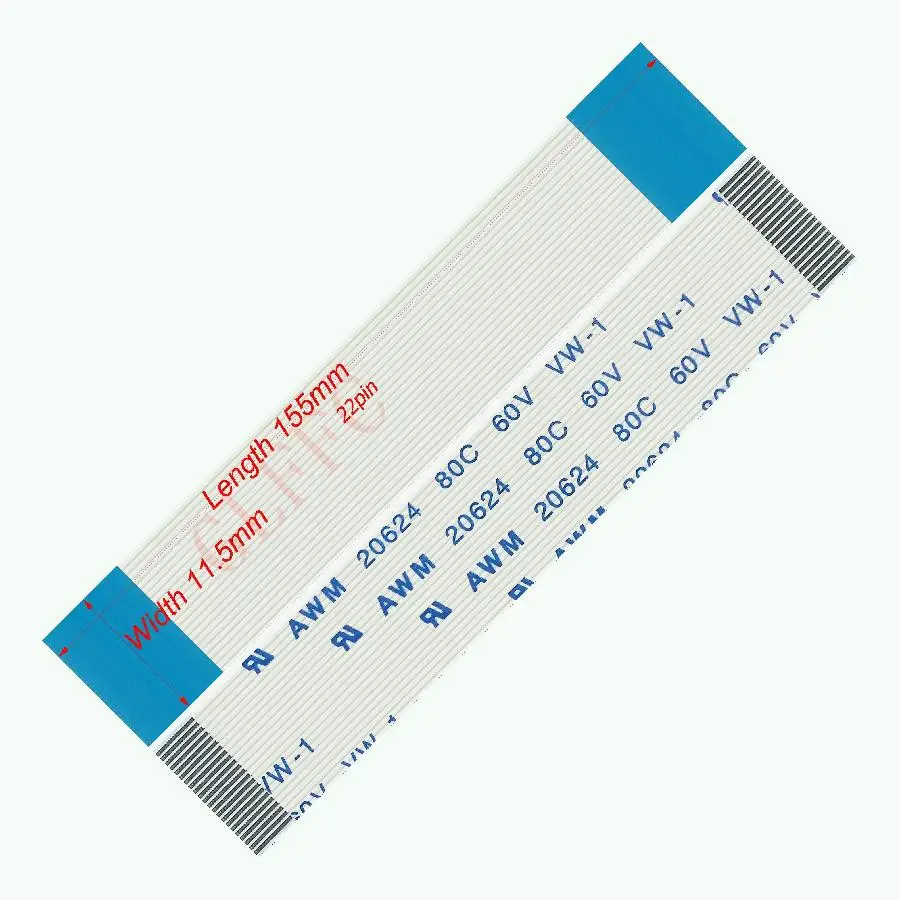 Length 155mm
22pin
Width 11.5mm
AWM 20624 80C 60V VW-1
AWM 20624 80C 60V VW-1
AWM 20624 80C 60V VW-1
AWM 20624 80C 60V
VW-1
60V VW-1